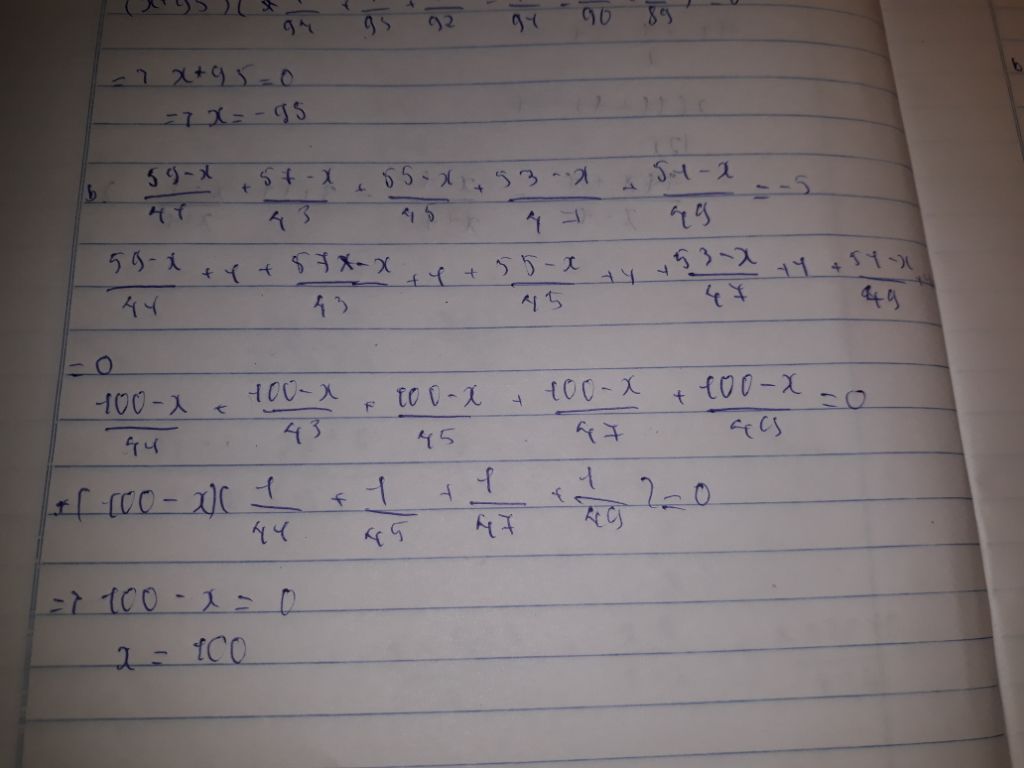 => x+95=0
=> x=-95
b. (59-x)/41 + (57-x)/43 + (55-x)/45 + (53-x)/47 + (51-x)/49 = -5
(59-x)/41 +1 + (57-x)/43 +1 + (55-x)/45 +1 + (53-x)/47 +1 + (51-x)/49 +
= 0
(100-x)/41 + (100-x)/43 + (100-x)/45 + (100-x)/47 + (100-x)/49 = 0
(100-x)( 1/41 + 1/45 + 1/47 + 1/49 ) = 0
=> 100 - x = 0
x = 100